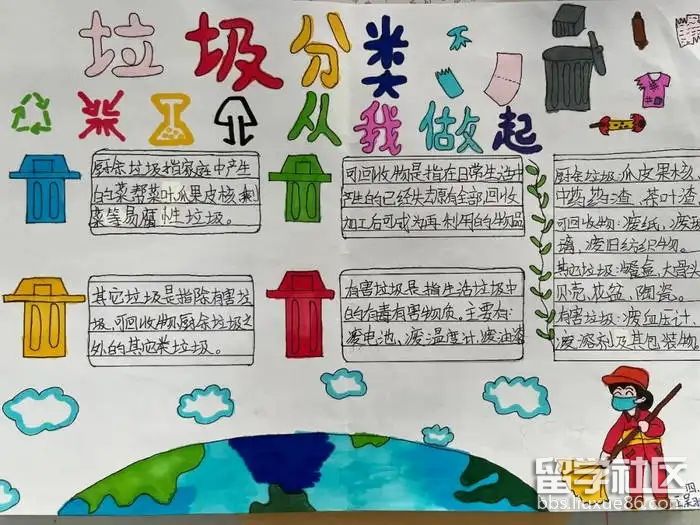 垃圾分类
从我做起
厨余垃圾指家庭中产生
的菜帮菜叶瓜果皮核剩
菜等易腐性垃圾。
可回收物是指在日常生活中
产生的已经失去原有全部回收
加工后可成为再利用的物品
其它垃圾是指除有害垃
圾、可回收物厨余垃圾之
外的其它类垃圾。
有害垃圾是指生活垃圾中
的有毒有害物质。主要有:
废电池、废温度计、废油漆
厨余垃圾:瓜皮果核、
中药药渣、茶叶渣
可回收物:废纸、废玻
璃、废旧纺织物。
其它垃圾:餐盒、大骨头
贝壳、花盆、陶瓷。
有害垃圾:废血压计、
废溶剂及其包装物。
留学社区
bbs.liuxue86.com
四.